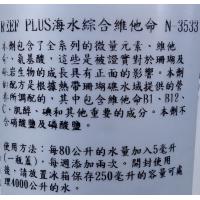 REEF PLUS海水綜合維他命 N-3533
本劑包含了全系列的微量元素、維他
命、氨基酸，這些是被證實對於珊瑚及
無脊椎生物的成長具有正面的影響。本劑
的配方是根據熱帶珊瑚礁水域提供的營
養所調配的，其中包含維他命B1、B12、
C、肌醇、碘和其他重要的成分。本劑不
含硝酸鹽及磷酸鹽。
使用方法：每80公升的水量加入5毫升
(一瓶蓋)，每週添加兩次。開封使用
後，請放置冰箱保存250毫升的容量可處
理4000公升的水。